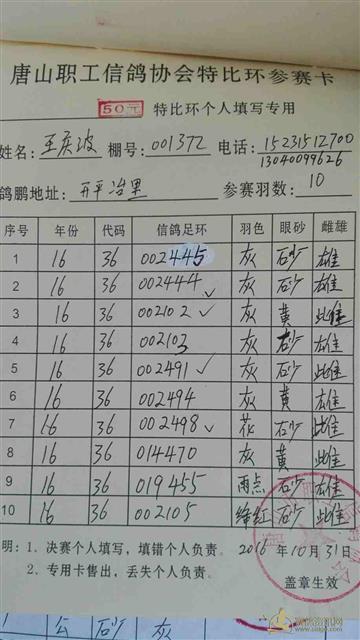 唐山职工信鸽协会特比环参赛卡
50元 特比环个人填写专用
姓名: 王庆波 棚号: 001372 电话: 15231512700
13040099626
鸽棚地址: 开平冶里 参赛羽数: 10
序号 年份 代码 信鸽足环 羽色 眼砂 雌雄
1 16 36 002445 灰 砂 雄
2 16 36 002444 灰 砂 雄
3 16 36 002102 灰 黄 雌
4 16 36 002103 灰 砂 雄
5 16 36 002491 灰 砂 雌
6 16 36 002494 灰 黄 雄
7 16 36 002498 花 砂 雌
8 16 36 014470 灰 黄 雌
9 16 36 019455 雨点 砂 雄
10 16 36 002105 绛红 砂 雌
明: 1. 决赛个人填写, 填错个人负责。 2016年10月31日
2. 专用卡售出, 丢失个人负责。
盖章生效
砂 灰